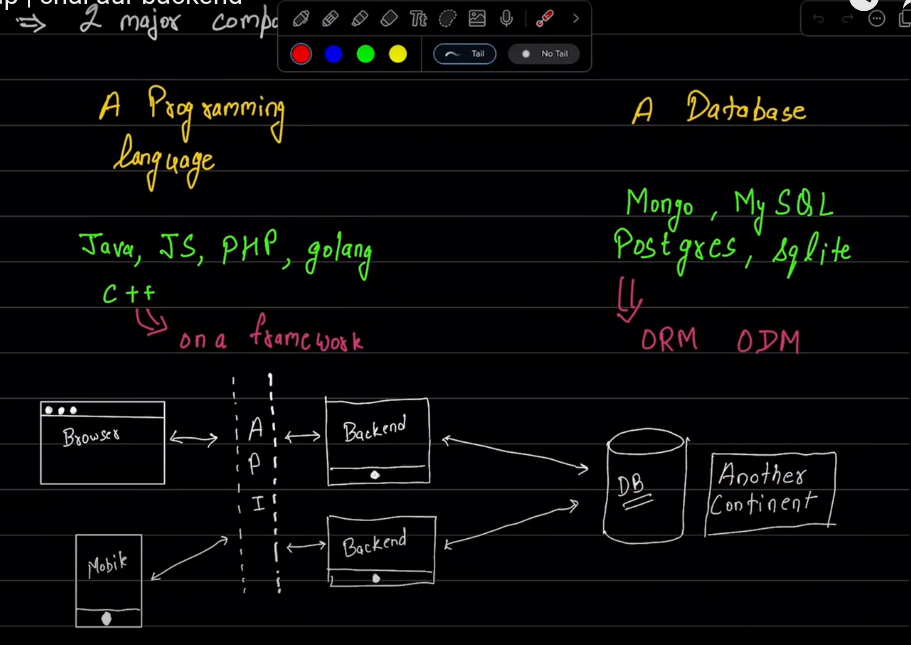 chai aur backend
⇒ 2 major compo
Tt
Tail
No Tail
A Programming
language
A Database
Mongo, MySQL
Postgres, sqlite
Java, JS, PHP, golang
C++
on a framework
ORM ODM
Browser
A
P
I
Backend
DB
Another
Continent
Mobile
Backend